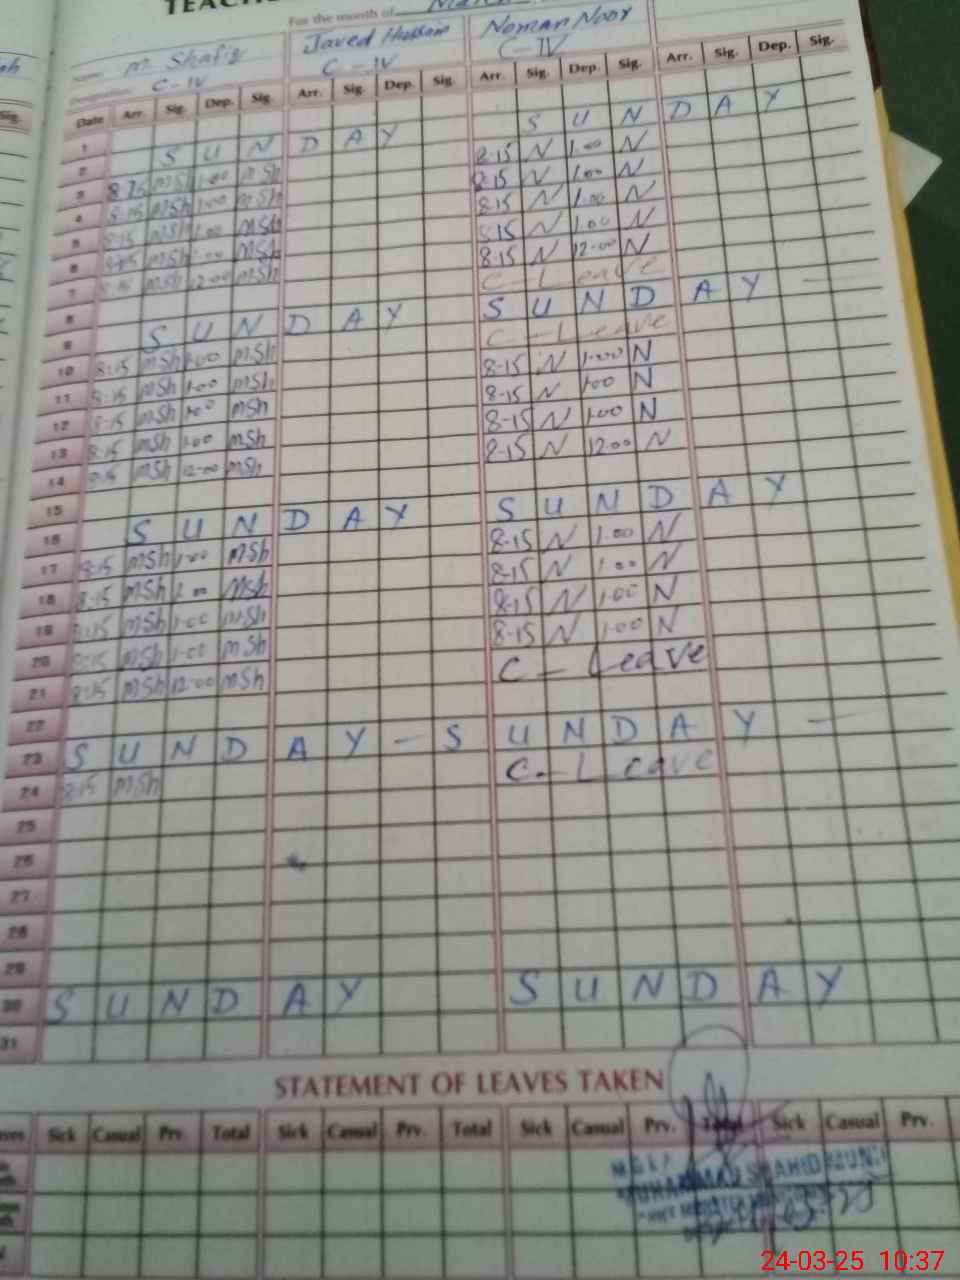 TEACHE
For the month of March
Name M. Shafiq Javed Hussain Noman Noor
Designation C-IV C-IV C-IV
Date Arr. Sig. Dep. Sig. Arr. Sig. Dep. Sig. Arr. Sig. Dep. Sig. Arr. Sig. Dep. Sig.
1
2 S U N D A Y S U N D A Y
3 8-15 MSh 1-00 MSh 8-15 N 1.00 N
4 8-15 MSh 1-00 MSh 8-15 N 1.00 N
5 8-15 MSh 1-00 MSh 8-15 N 1.00 N
6 8-15 MSh 1-00 MSh 8-15 N 1.00 N
7 8-15 MSh 12-00 MSh 8-15 N 12-00 N
8 C-Leave
9 S U N D A Y S U N D A Y —
10 8-15 MSh 1-00 MSh C-Leave
11 8-15 MSh 1-00 MSh 8-15 N 1-00 N
12 8-15 MSh 1-00 MSh 8-15 N 1-00 N
13 8-15 MSh 1-00 MSh 8-15 N 1-00 N
14 8-15 MSh 12-00 MSh 8-15 N 12-00 N
15
16 S U N D A Y S U N D A Y
17 8-15 MSh 1-00 MSh 8-15 N 1.00 N
18 8-15 MSh 1-00 MSh 8-15 N 1.00 N
19 8-15 MSh 1-00 MSh 8-15 N 1-00 N
20 8-15 MSh 1-00 MSh 8-15 N 1-00 N
21 8-15 MSh 12-00 MSh C - Leave
22
23 S U N D A Y - S U N D A Y —
24 8-15 MSh C - Leave
25
26
27
28
29
30 S U N D A Y S U N D A Y
31
STATEMENT OF LEAVES TAKEN
Sick Casual Prv. Total Sick Casual Prv. Total Sick Casual Prv. Total Sick Casual Prv.
24-03-25 10:37